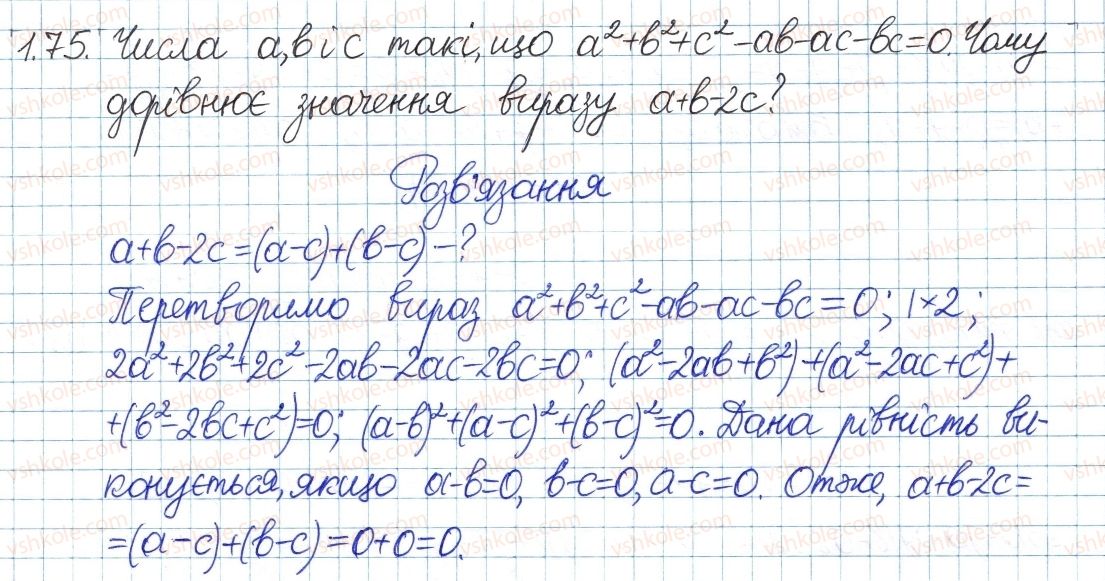 1.75. Числа a, b і c такі, що a²+b²+c²-ab-ac-bc=0. Чому
дорівнює значення виразу a+b-2c?
Розв'язання
a+b-2c=(a-c)+(b-c) -?
Перетворимо вираз a²+b²+c²-ab-ac-bc=0; |×2;
2a²+2b²+2c²-2ab-2ac-2bc=0; (a²-2ab+b²)+(a²-2ac+c²)+
+(b²-2bc+c²)=0; (a-b)²+(a-c)²+(b-c)²=0. Дана рівність ви-
конується, якщо a-b=0, b-c=0, a-c=0. Отже, a+b-2c=
=(a-c)+(b-c)=0+0=0.